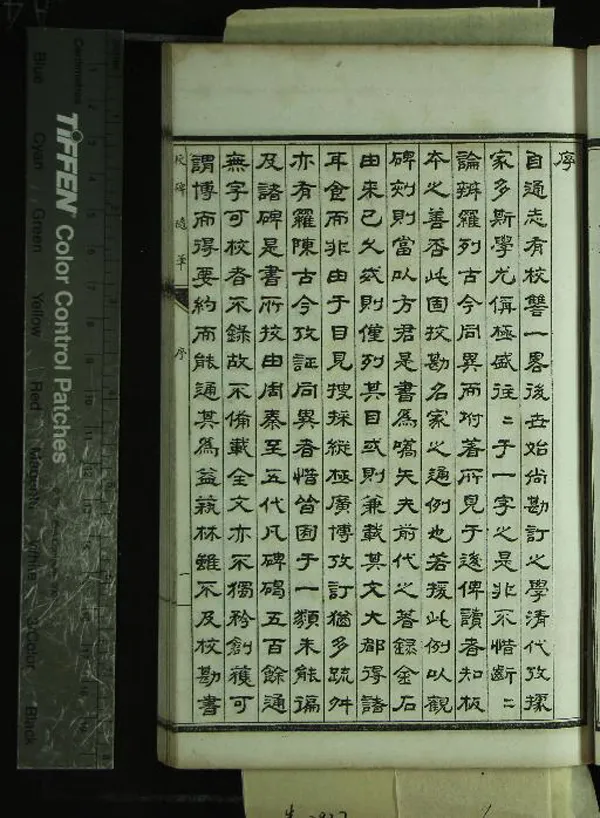 序
自通志有校讐一畧後世始尚勘訂之學清代攷據
家多斯學尤偁極盛往〻于一字之是非不惜齗〻
論辨羅列古今同異而坿著所見于後俾讀者知板
本之善否此固校勘名家之通例也若援此例以觀
碑刻則當以方君是書為嚆矢夫前代之著錄金石
由來已久或則僅列其目或則兼載其文大都得諸
耳食而非由于目見搜採縱極廣博攷訂猶多疏舛
亦有羅陳古今攷証同異者惜皆囿于一類未能徧
及諸碑是書所校由周秦至五代凡碑碣五百餘通
無字可校者不錄故不備載全文亦不獨矜創獲可
謂博而得要約而能通其為益蓺林雖不及校勘書
校碑隨筆
序
一
TIFFEN Color Control Patches
Blue
Cyan
Green
Yellow
Red
Magenta
White
3/Color
Black
Centimetres